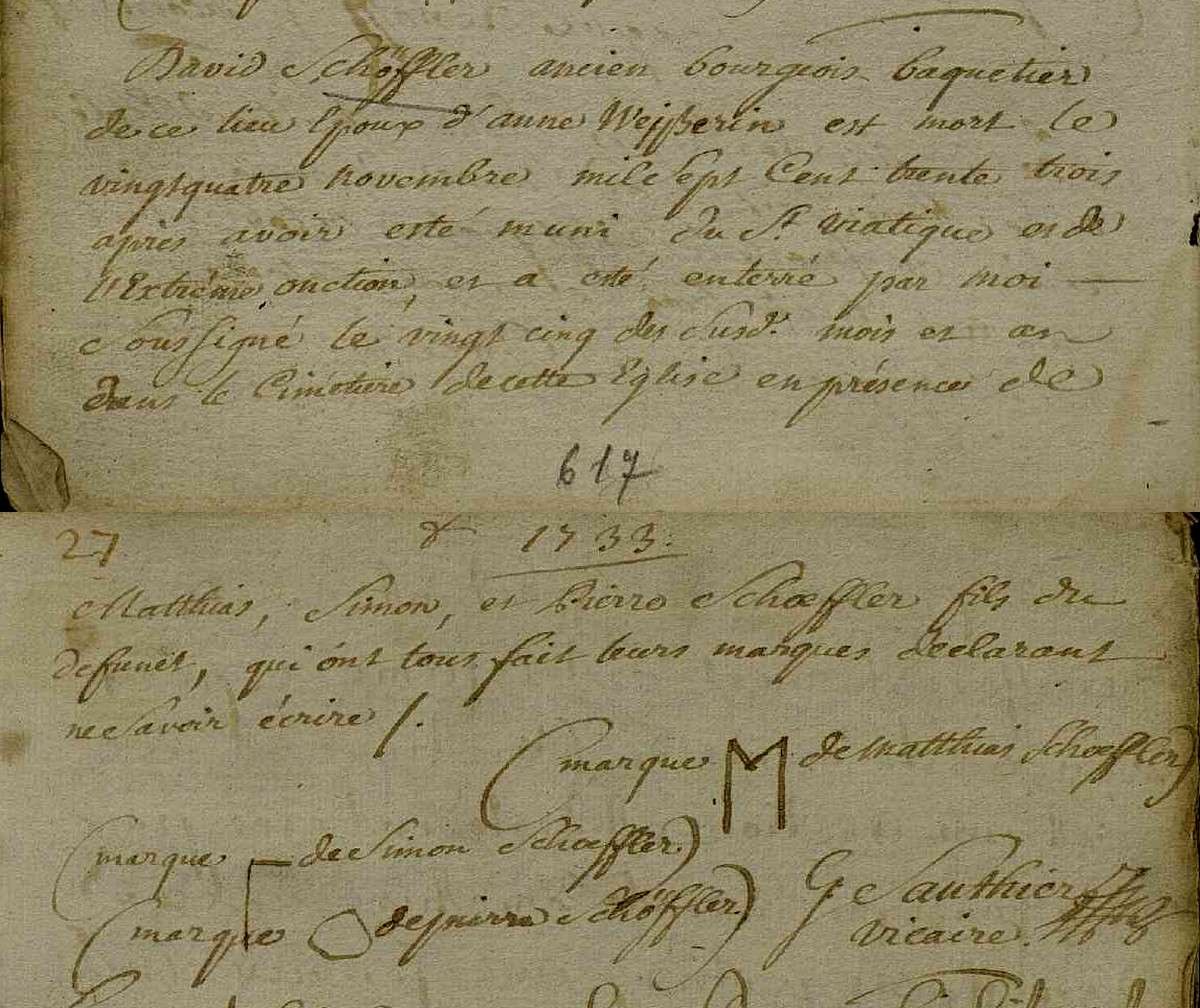 David Schöffler ancien bourgeois baquetier
de ce lieu Epoux d'anne Weÿßerin est mort le
vingtquatre novembre mil Sept Cent trente trois
apres avoir esté muni du St. viatique et de
l'Extréme onction, et a esté enterré par moi —
Soussigné le vingt cinq des Susd. mois et an
dans le Cimetiere de cette Eglise en présence de
617
27 1733.
Matthias, Simon, et Pierre Schœffler fils du
defunct, qui ónt tous fait leurs marques declarant
ne Savoir écrire /.
(marque M de Matthias Schoeffler)
(marque de Simon Schoeffler.)
(marque de pierre Schöffler.) G Sauthier
vicaire.